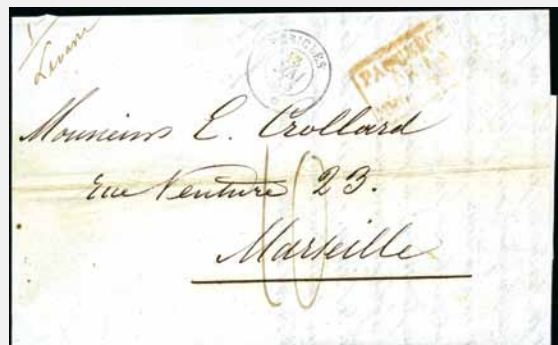 PÉRICLÈS
PAQUEBOT
Monsieur E. Crollard
rue Venture 23.
Marseille
10